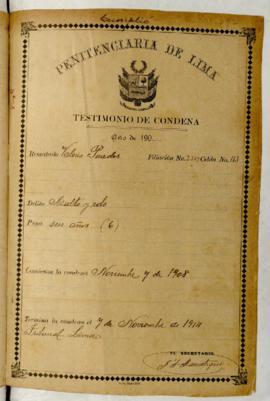 Cumplió
PENITENCIARIA DE LIMA
TESTIMONIO DE CONDENA
Año de 190
Rematado Valerio Paredes Filiación No. Celda No.
Delito Asalto y robo
Pena seis años (6)
Comienza la condena Noviembre 7 de 1908
Termina la condena el 7 de Noviembre de 1914
Tribunal Lima
EL SECRETARIO.